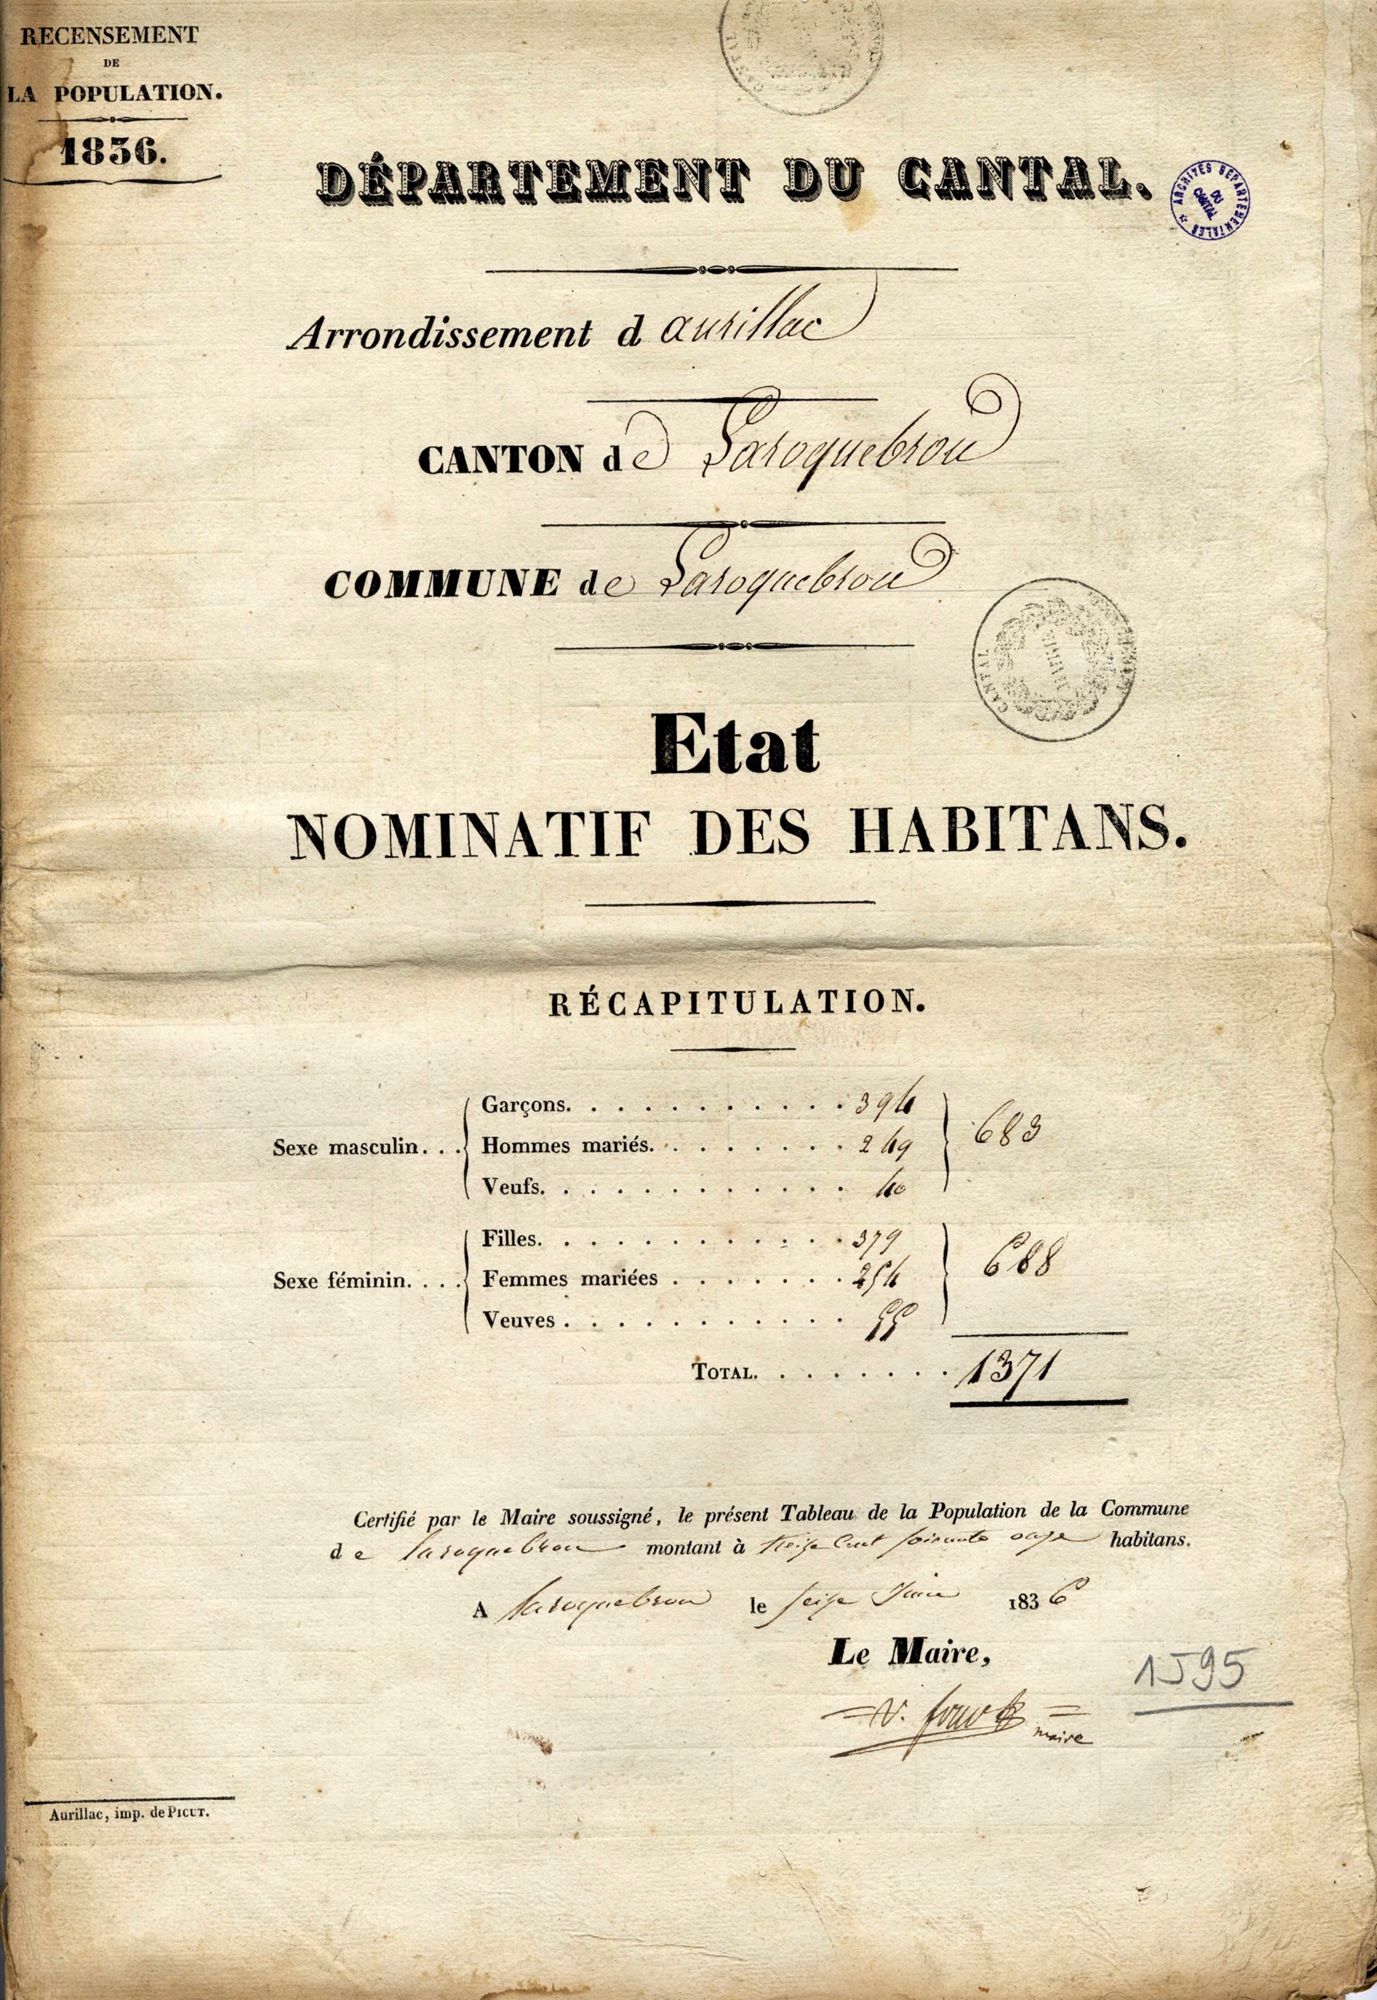 RECENSEMENT
DE
LA POPULATION.
1836.
DÉPARTEMENT DU CANTAL.
ARCHIVES DÉPARTEMENTALES
DU
CANTAL
Arrondissement d aurillac
CANTON de Laroquebrou
COMMUNE de Laroquebrou
CANTAL
Etat
NOMINATIF DES HABITANS.
RÉCAPITULATION.
Sexe masculin...
Garçons. . . . . . . . . . . 394
Hommes mariés. . . . . . . . 249
Veufs. . . . . . . . . . . . 40
683
Sexe féminin....
Filles. . . . . . . . . . . . 379
Femmes mariées . . . . . . . 254
Veuves . . . . . . . . . . . 55
688
TOTAL. . . . . . . . 1371
Certifié par le Maire soussigné, le présent Tableau de la Population de la Commune
de Laroquebrou montant à treize Cent soixante onze habitans.
A Laroquebrou le seize Juin 1836
Le Maire,
1595
V.
maire
Aurillac, imp. de PICUT.